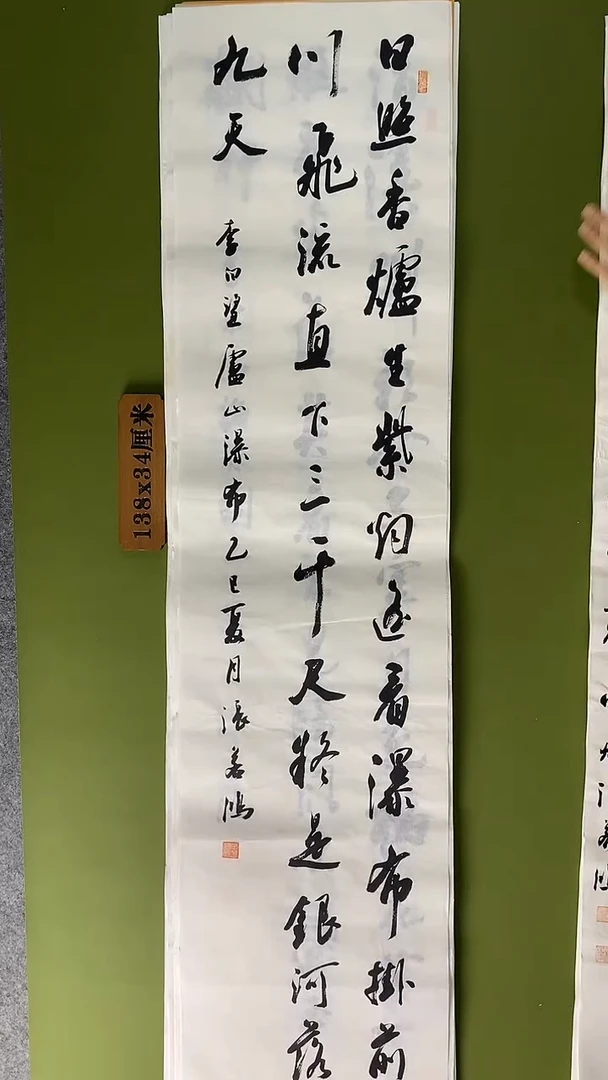 日照香爐生紫烟遥看瀑布掛前
川飛流直下三千尺疑是銀河落
九天
李白望廬山瀑布乙巳夏月張若鴻
138x34厘米